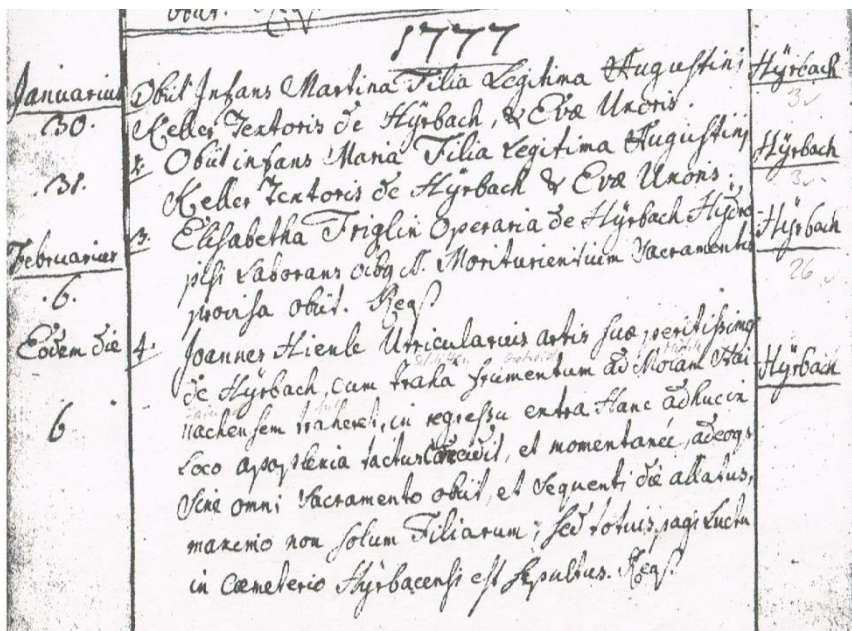 obiit. Req
1777
Januarius Obiit Infans Martina Filia Legitima Augustini Hÿrbach
30. Keller Textoris de Hÿrbach, & Evæ Uxoris. 3
2. Obiit infans Maria Filia Legitima Augustini Hÿrbach
31. Keller Textoris de Hÿrbach & Evæ Uxoris. 3
Februarius 3. Elisabetha Friglin Operaria de Hÿrbach Hydro- Hÿrbach
.6. pisi Laborans oibq SS. Moriturientium Sacramentis 26
provisa obiit. Req
Eodem die 4. Joannes Hienle Utricularius artis suæ peritissimq
de Hÿrbach, cum traha frumentum ad Molam Hai Hÿrbach
6 nachensem traheret, in regressu extra Hanc adhuc in
Loco apoplexia tactus decidit, et momentanee, adeoqs
Sine omni Sacramento obiit, et Sequenti die allatus,
maximo non solum Filiarum, sed totius pagi Luctu
in Cæmeterio Hÿrbacensi est sepultus. Req